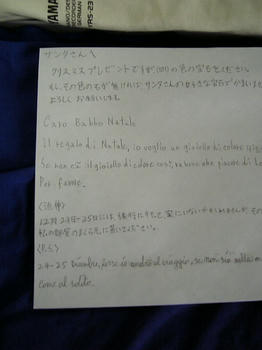 YAMA
RS-23
サンタさんへ
クリスマスプレゼントですが の色の宝石をください。
もし、その色の石が無ければ、サンタさんの好きな宝石でかまいません
よろしくお願いします。
Caro Babbo Natale
Il regalo di Natale, io voglio un gioiello di colore
Se non c'è il gioiello di colore così, va bene che piacere di
Per favore.
12月24日-25日には、旅行に行って家にいないかもしれませんが、その
私の部屋のまくら元に置いてください。
(P.S.)
24-25 Dicembre, forse io andrò al viaggio, se non sia nella
come al solito.